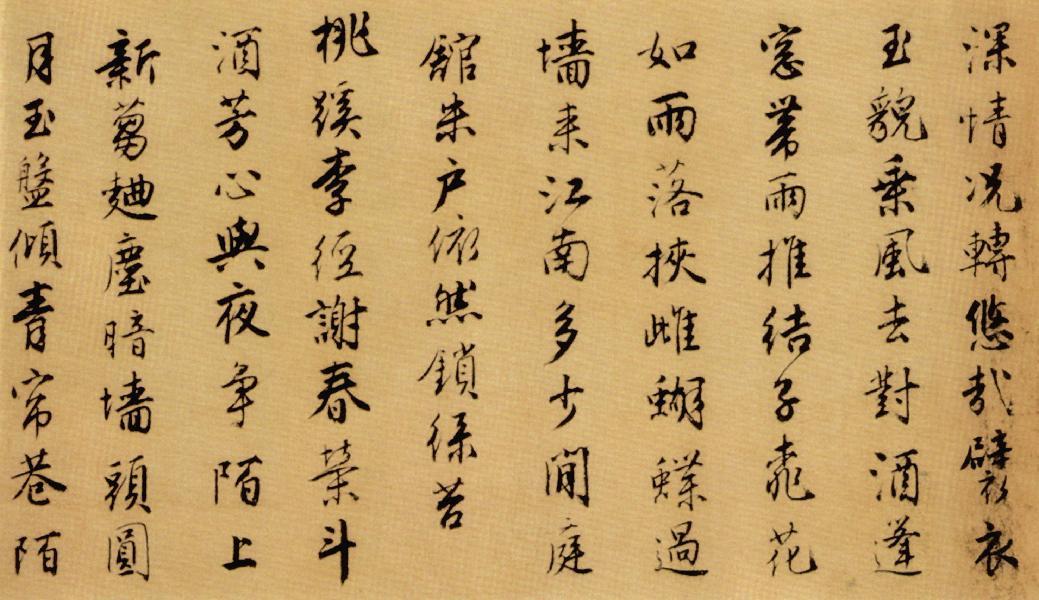 深情况轉悠哉襞衣
玉貌乘風去對酒蓬
窓帶雨推結子飛花
如雨落挾雌蝴蝶過
墻来江南多少閒庭
館朱户依然鎖緑苔
桃蹊李徑謝春榮斗
酒芳心與夜争陌上
新蒭麯塵暗墻頭圓
月玉盤傾青帘巷陌